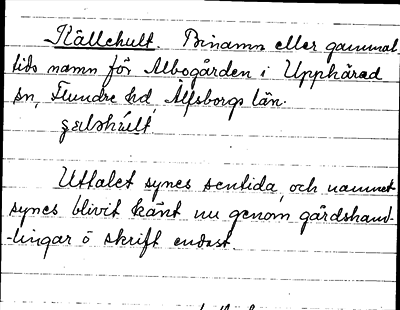 Källehult. Binamn eller gammal
tids namn för Albogården i Upphärad
sn, Flundre hd, Älfsborgs län.

Uttalet synes sentida, och namnet
synes blivit känt nu genom gårdshand-
-lingar o skrift endast.